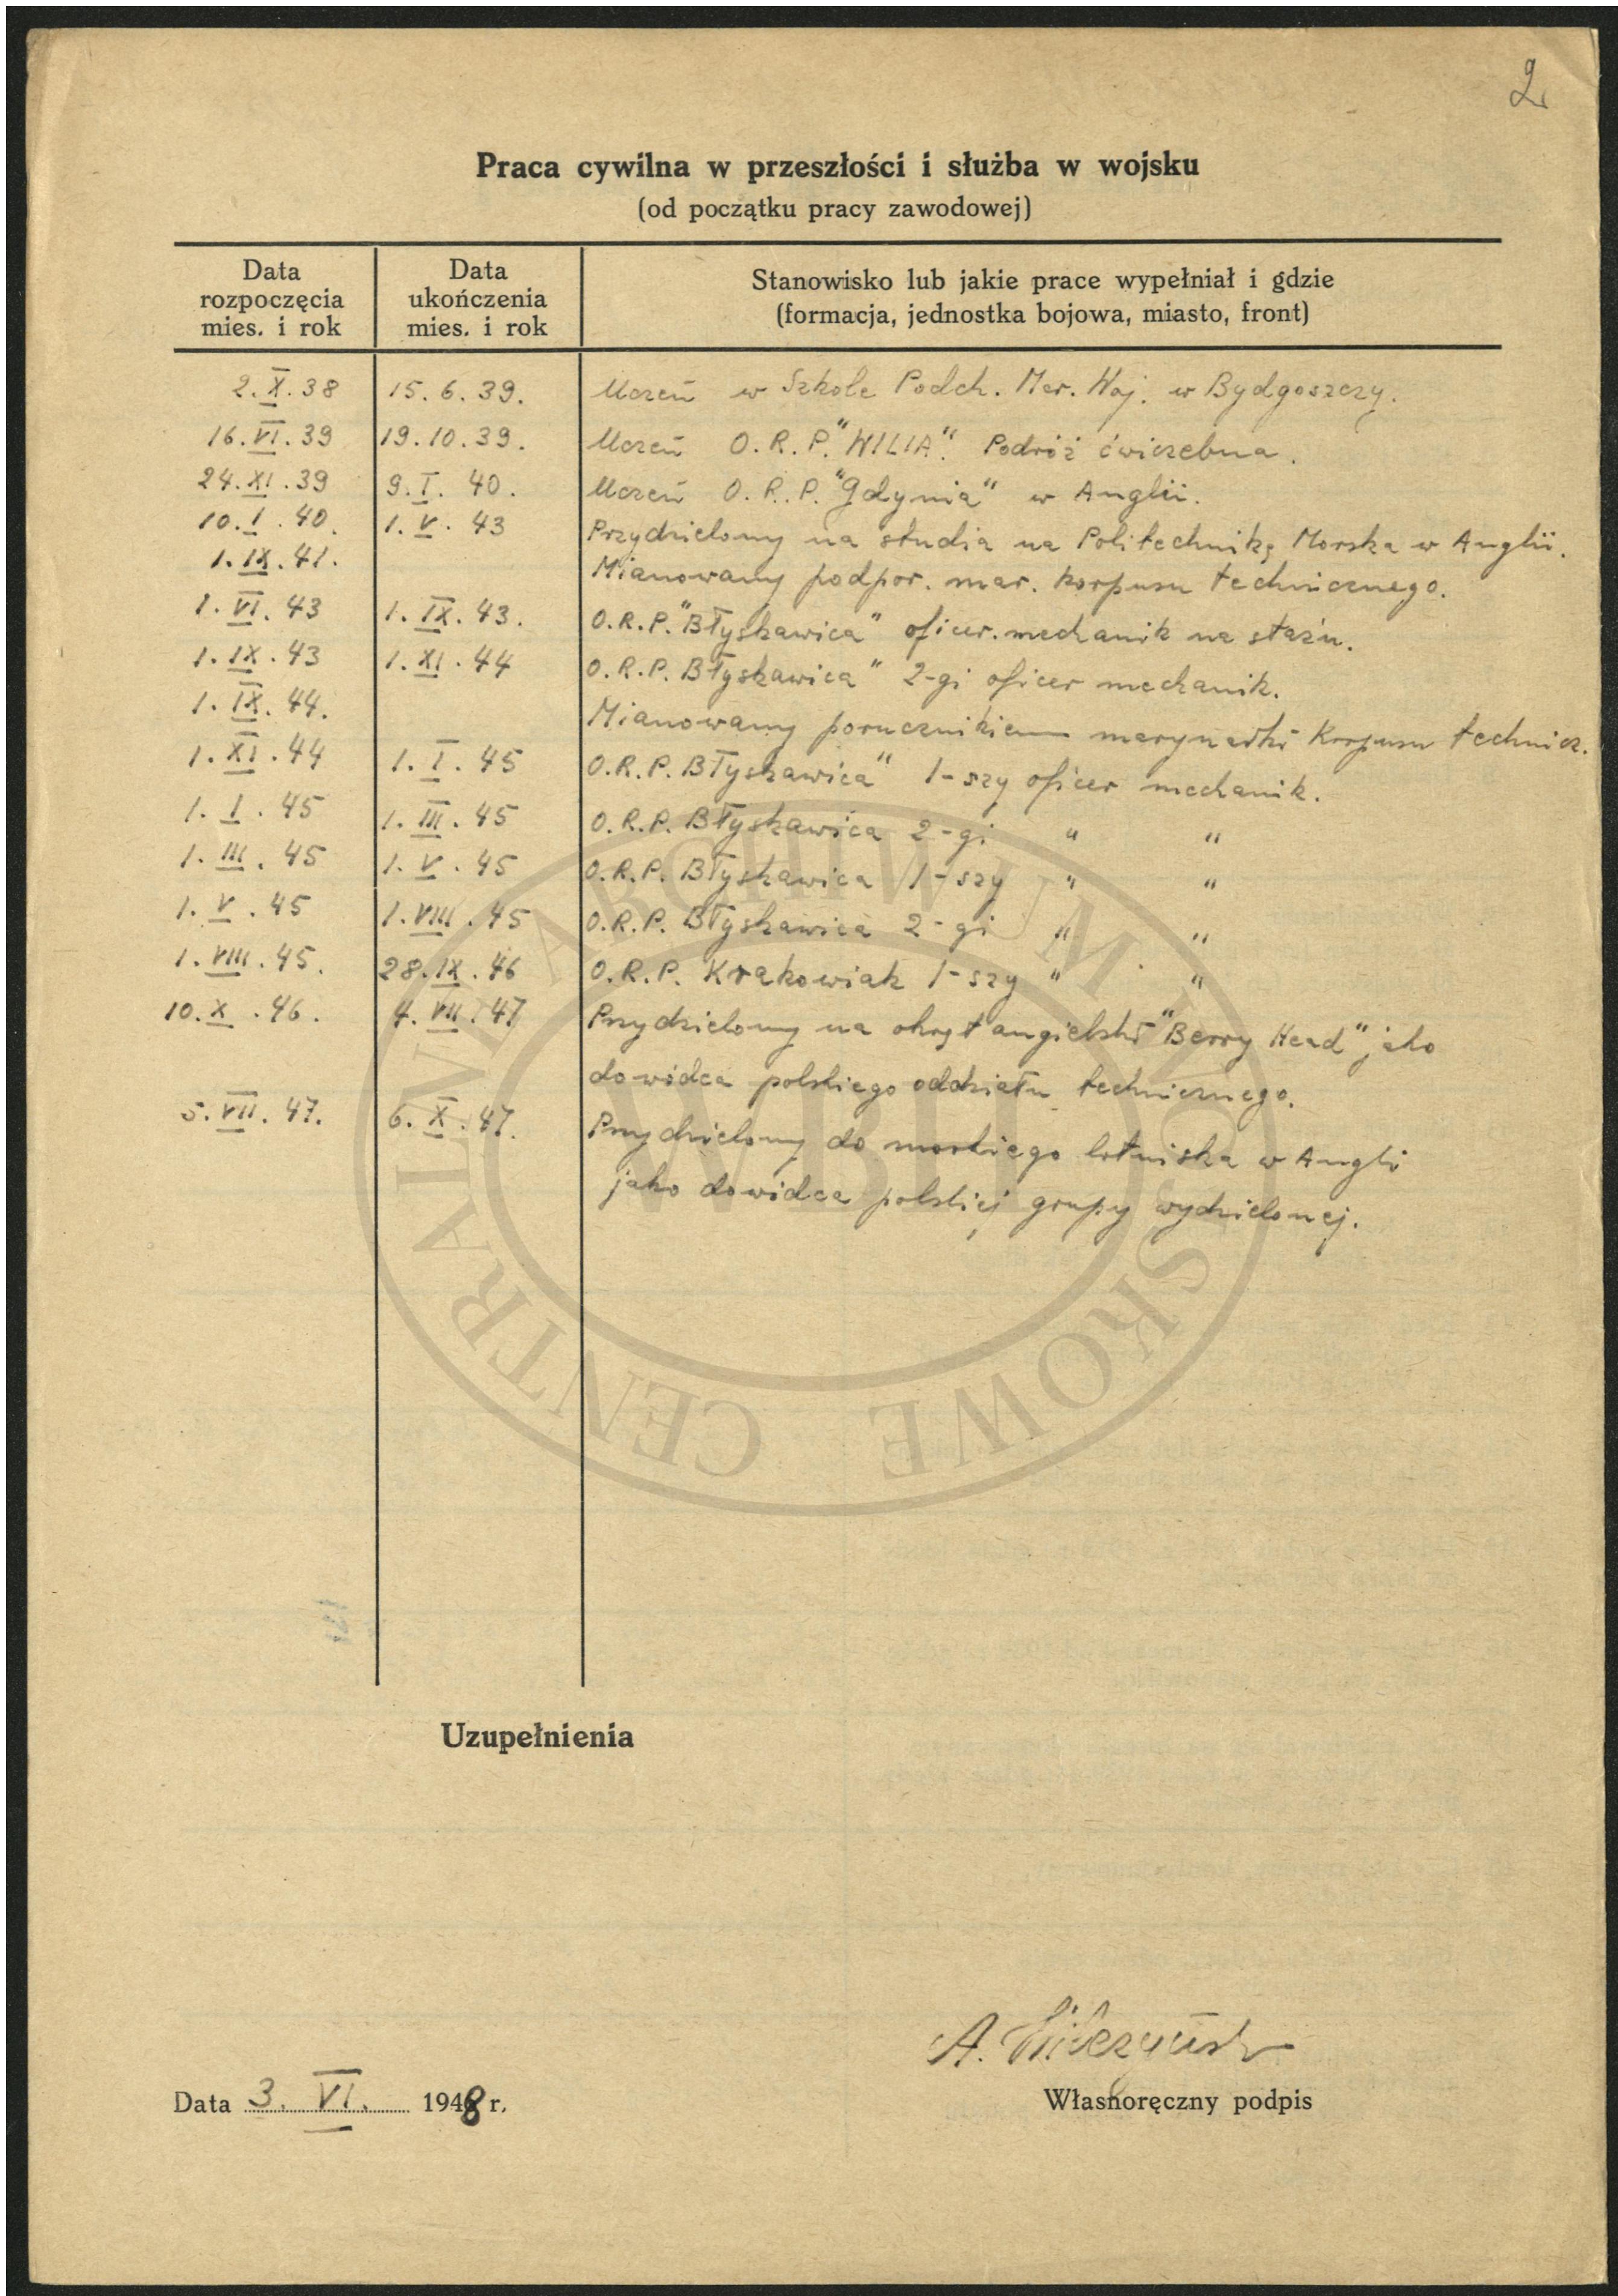 2
Praca cywilna w przeszłości i służba w wojsku
(od początku pracy zawodowej)
Data rozpoczęcia mies. i rok | Data ukończenia mies. i rok | Stanowisko lub jakie prace wypełniał i gdzie (formacja, jednostka bojowa, miasto, front)
2.X.38 15.6.39. Uczeń w Szkole Podch. Mar. Woj. w Bydgoszczy.
16.VI.39 19.10.39. Uczeń O.R.P. "WILIA". Podróż ćwiczebna.
24.XI.39 9.I.40. Uczeń O.R.P. "Gdynia" w Anglii.
10.I.40. 1.V.43 Przydzielony na studia na Politechnikę Morska w Anglii.
1.IX.41. Mianowany podpor. mar. korpusu technicznego.
1.VI.43 1.IX.43. O.R.P. "Błyskawica" oficer. mechanik na stażu.
1.IX.43 1.XI.44 O.R.P. Błyskawica" 2-gi oficer mechanik.
1.IX.44. Mianowany porucznikiem marynarki Korpusu technicz.
1.XI.44 1.I.45 O.R.P. Błyskawica" 1-szy oficer mechanik.
1.I.45 1.III.45 O.R.P. Błyskawica 2-gi " "
1.III.45 1.V.45 O.R.P. Błyskawica 1-szy " "
1.V.45 1.VIII.45 O.R.P. Błyskawica 2-gi " "
1.VIII.45. 28.IX.46 O.R.P. Krakowiak 1-szy " "
10.X.46. 4.VII.47 Przydzielony na okręt angielski "Berry Head" jako
dowódca polskiego oddziału technicznego.
5.VII.47. 6.X.47. Przydzielony do morskiego lotniska w Angli
jako dowódca polskiej grupy wydzielonej.
CENTRALNE ARCHIWUM WOJSKOWE
WBH
Uzupełnienia
A.
Data 3. VI. 1948 r.
Własnoręczny podpis